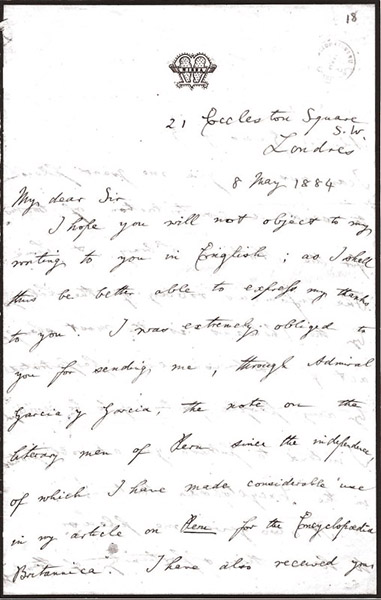 18
21 Eccleston Square
S.W.
Londres
8 May 1884
My dear Sir
I hope you will not object to my
writing to you in English; as I shall
thus be better able to express my thanks
to you. I was extremely obliged to
you for sending me, through Admiral
Garcia y Garcia, the note on the
literary men of Peru since the independence,
of which I have made considerable use
in my article on Peru for the Encyclopædia
Britannica. I have also received your